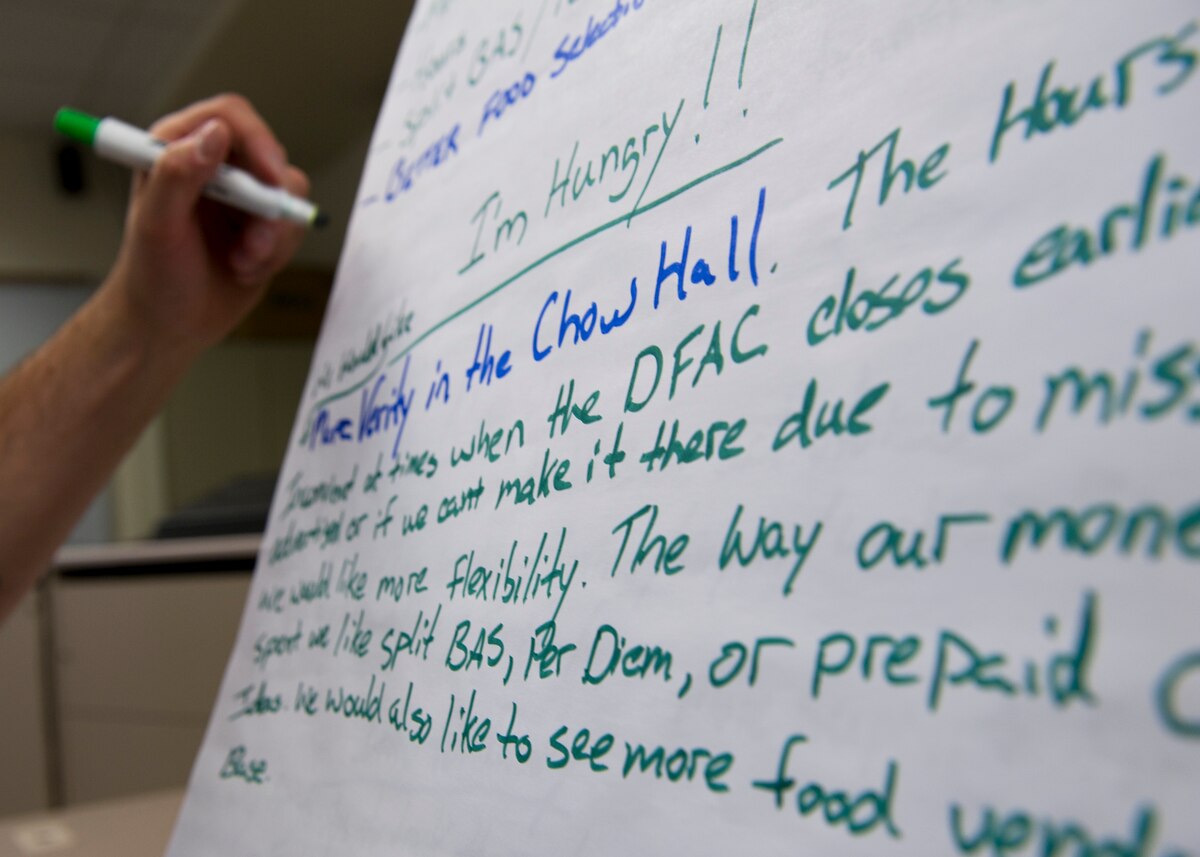 - Hours
- Split BAS/
- BETTER FOOD Selectio
I'm Hungry!!
We would like
more Verity in the Chow Hall. The Hours
at times when the DFAC closes earlie
or if we cant make it there due to miss
we would like more flexibility. The way our mone
spent we like split BAS, Per Diem, or prepaid c
Ideas. We would also like to see more food vend
Base.